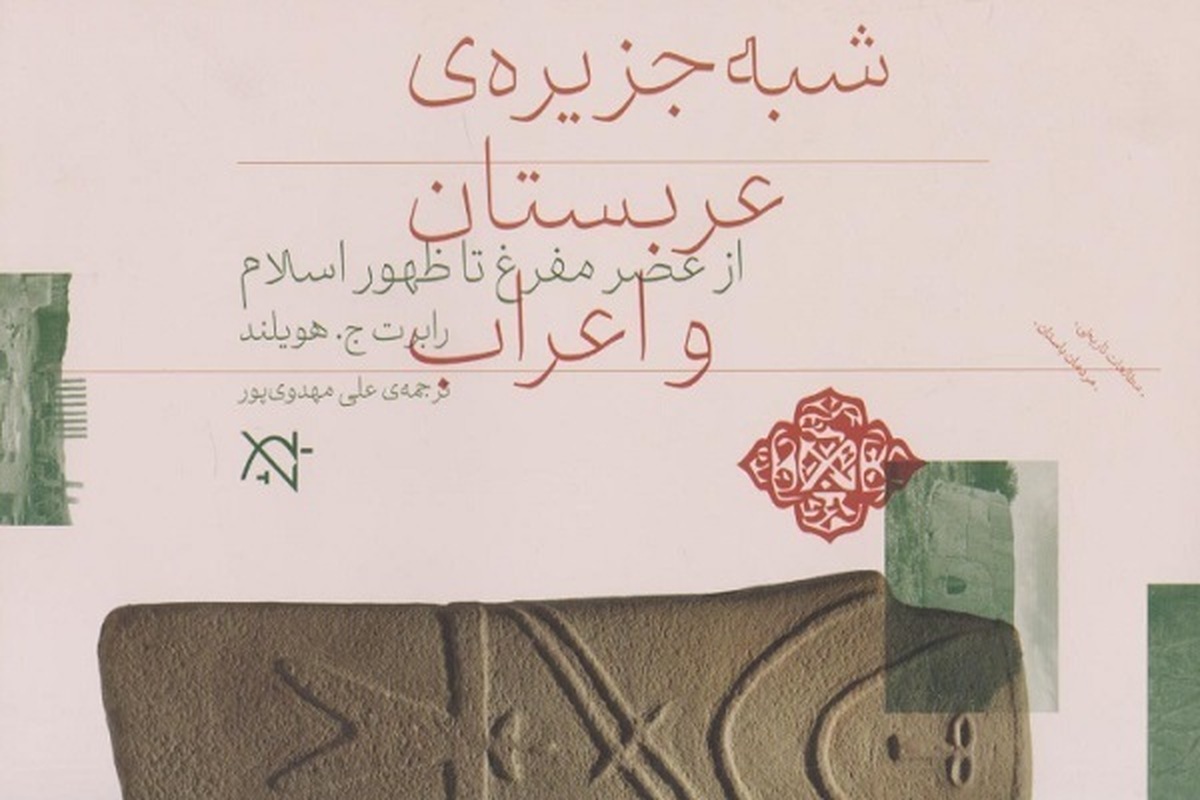 شبه‌جزیره‌ی
عربستان
و اعراب
از عصر مفرغ تا ظهور اسلام
رابرت ج. هویلند
ترجمه‌ی علی مهدوی‌پور
.مطالعات تاریخی.
.مردمان باستان.